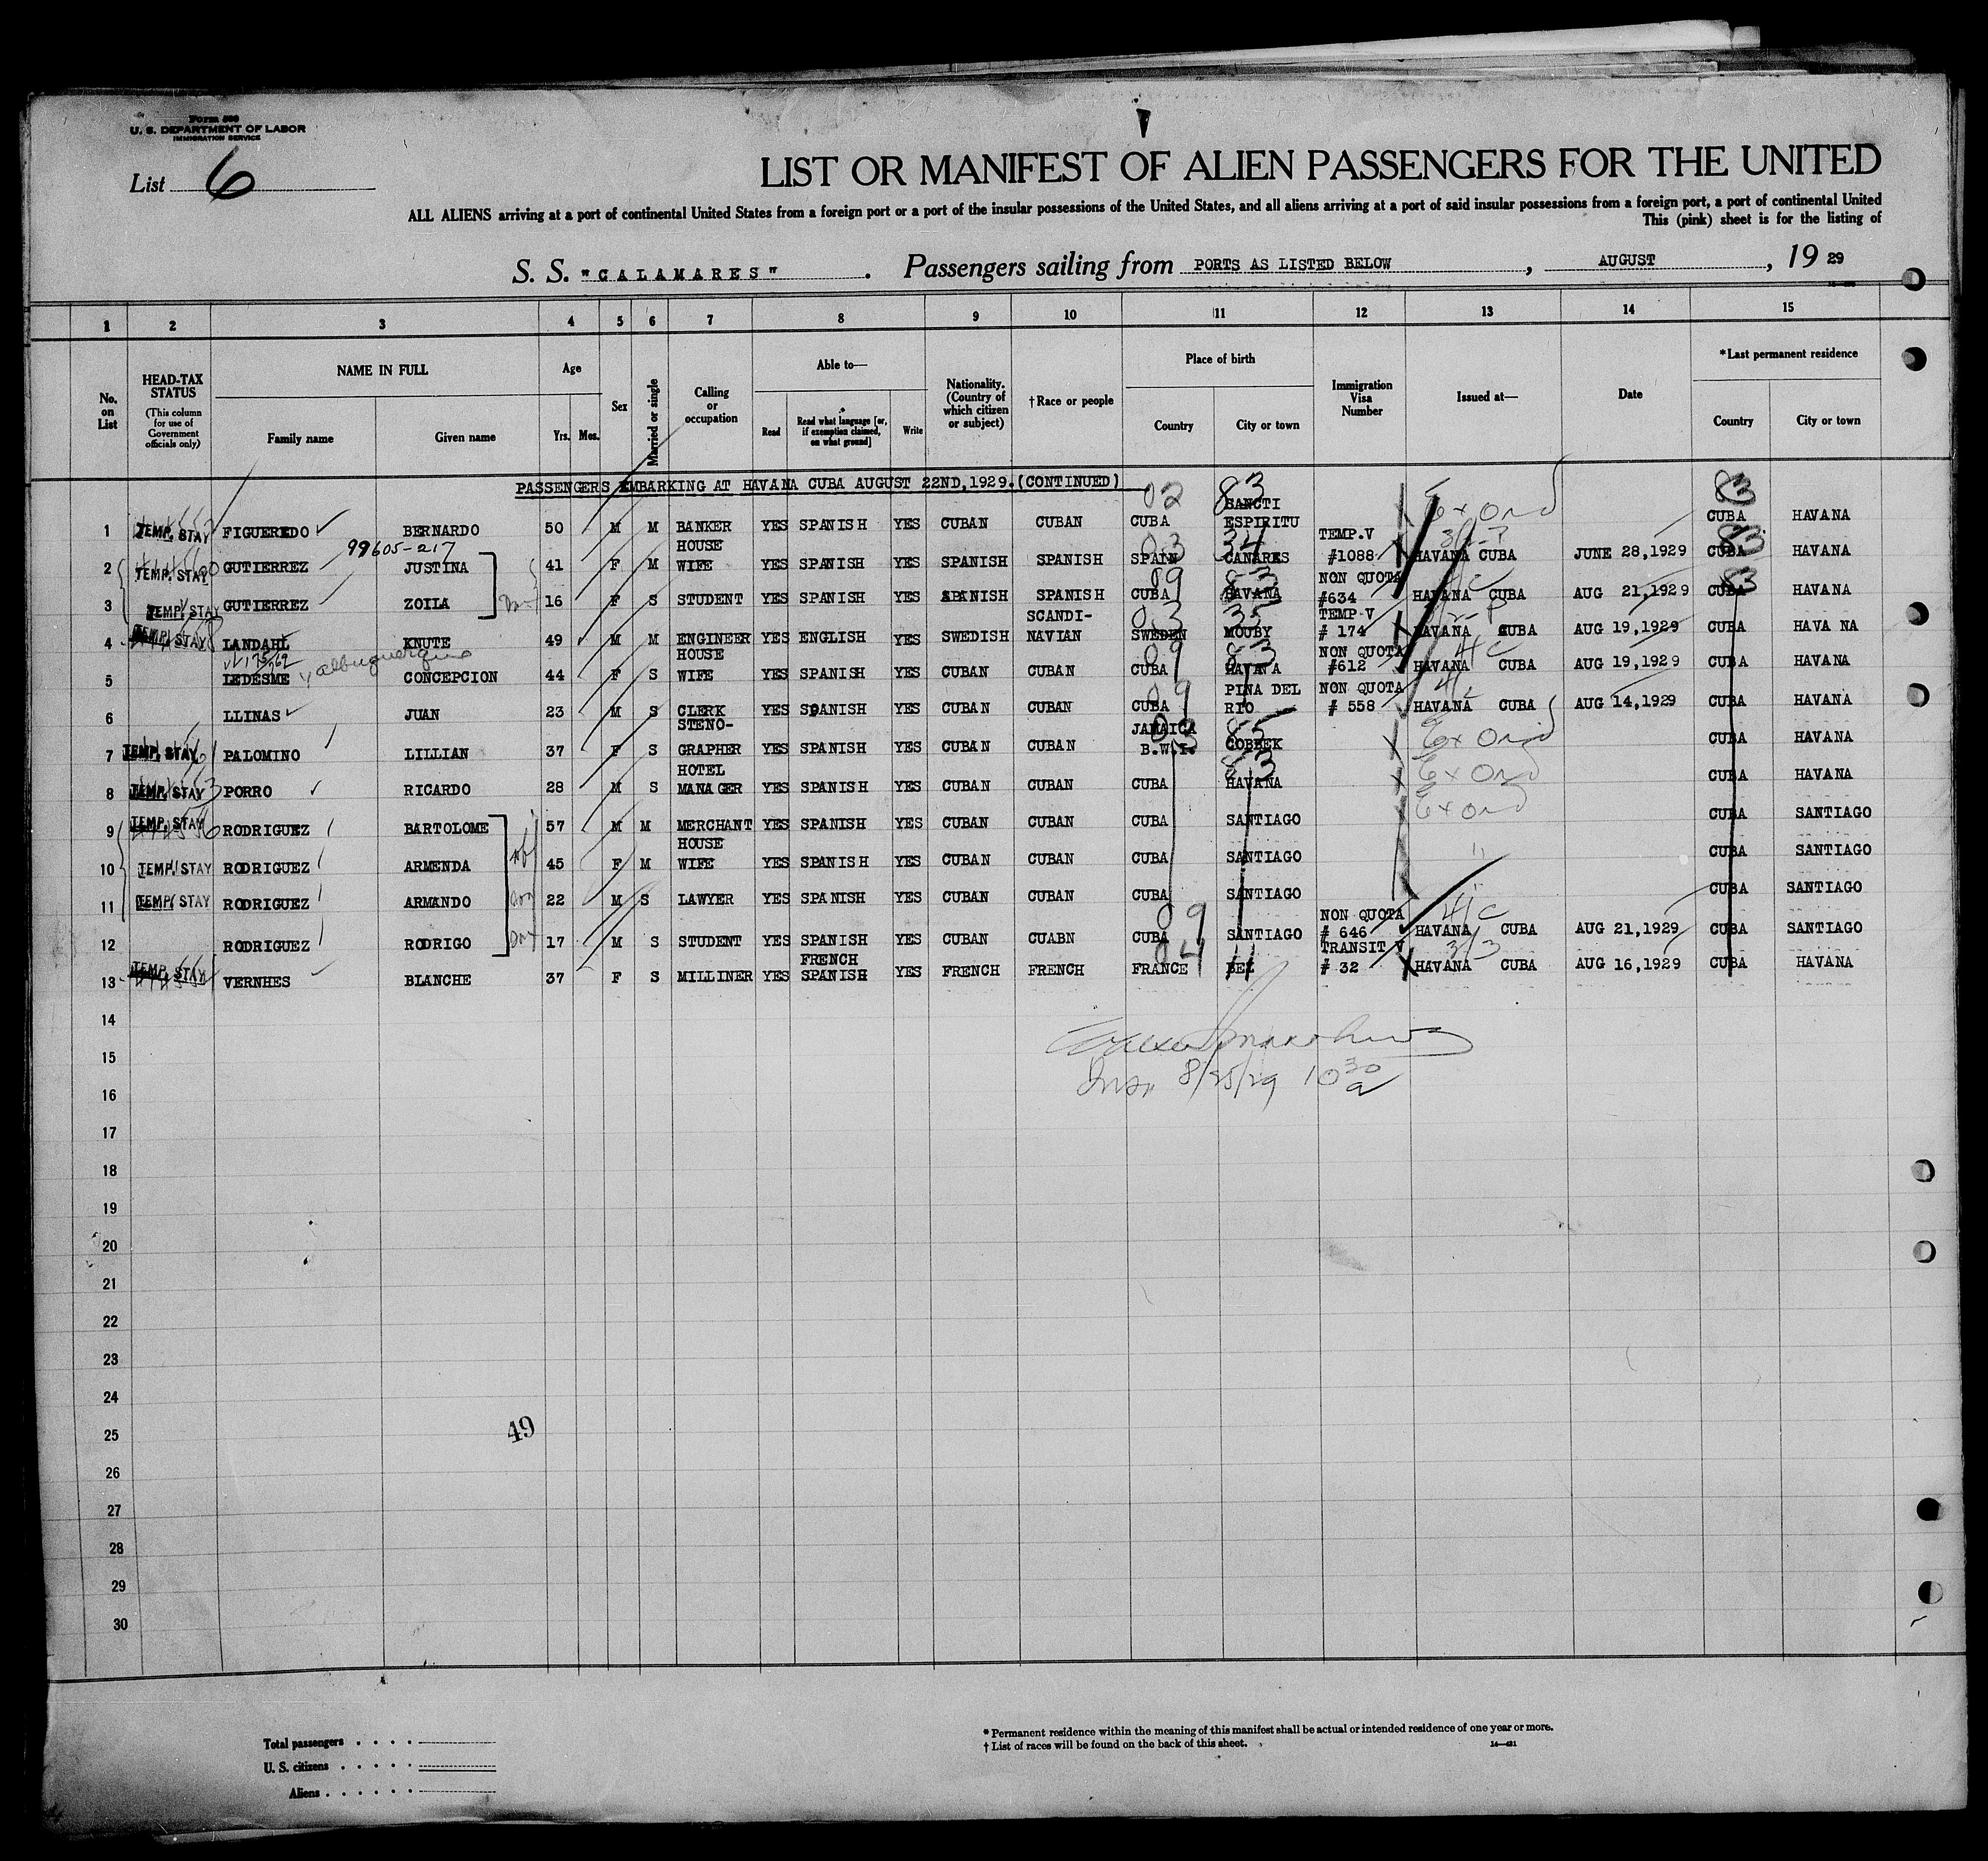 Form 500
U. S. DEPARTMENT OF LABOR
IMMIGRATION SERVICE
List 6
LIST OR MANIFEST OF ALIEN PASSENGERS FOR THE UNITED
ALL ALIENS arriving at a port of continental United States from a foreign port or a port of the insular possessions of the United States, and all aliens arriving at a port of said insular possessions from a foreign port, a port of continental United
This (pink) sheet is for the listing of
S. S. "CALAMARES". Passengers sailing from PORTS AS LISTED BELOW, AUGUST, 19 29
1 2 3 4 5 6 7 8 9 10 11 12 13 14 15
No. on List
HEAD-TAX STATUS (This column for use of Government officials only)
NAME IN FULL Family name Given name
Age Yrs. Mos.
Sex
Married or single
Calling or occupation
Able to— Read Read what language [or, if exemption claimed, on what ground] Write
Nationality. (Country of which citizen or subject)
†Race or people
Place of birth Country City or town
Immigration Visa Number
Issued at—
Date
*Last permanent residence Country City or town
PASSENGERS EMBARKING AT HAVANA CUBA AUGUST 22ND,1929.(CONTINUED)
02 83 83
1 TEMP. STAY FIGUEREDO BERNARDO 50 M M BANKER YES SPANISH YES CUBAN CUBAN CUBA SANCTI ESPIRITU Ex Ord CUBA HAVANA
99605-217
2 TEMP. STAY GUTIERREZ JUSTINA 41 F M HOUSE WIFE YES SPANISH YES SPANISH SPANISH SPAIN CANARES TEMP.V #1088 HAVANA CUBA JUNE 28,1929 CUBA HAVANA
3 TEMP. STAY GUTIERREZ ZOILA 16 F S STUDENT YES SPANISH YES SPANISH SPANISH CUBA HAVANA NON QUOTA #634 HAVANA CUBA AUG 21,1929 CUBA HAVANA
4 TEMP. STAY LANDAHL KNUTE 49 M M ENGINEER YES ENGLISH YES SWEDISH SCANDI-NAVIAN SWEDEN MOUBY TEMP V # 174 HAVANA CUBA AUG 19,1929 CUBA HAVA NA
5 LEDESME albuquerque CONCEPCION 44 F S HOUSE WIFE YES SPANISH YES CUBAN CUBAN CUBA HAVANA NON QUOTA #612 HAVANA CUBA AUG 19,1929 CUBA HAVANA
6 LLINAS JUAN 23 M S CLERK YES SPANISH YES CUBAN CUBAN CUBA PINA DEL RIO NON QUOTA # 558 HAVANA CUBA AUG 14,1929 CUBA HAVANA
7 TEMP. STAY PALOMINO LILLIAN 37 F S STENO-GRAPHER YES SPANISH YES CUBAN CUBAN JAMAICA B.W.I. Ex Ord CUBA HAVANA
8 TEMP. STAY PORRO RICARDO 28 M S HOTEL MANAGER YES SPANISH YES CUBAN CUBAN CUBA HAVANA Ex Ord CUBA HAVANA
9 TEMP. STAY RODRIGUEZ BARTOLOME 57 M M MERCHANT YES SPANISH YES CUBAN CUBAN CUBA SANTIAGO Ex Ord CUBA SANTIAGO
10 TEMP. STAY RODRIGUEZ ARMENDA 45 F M HOUSE WIFE YES SPANISH YES CUBAN CUBAN CUBA SANTIAGO CUBA SANTIAGO
11 TEMP. STAY RODRIGUEZ ARMANDO 22 M S LAWYER YES SPANISH YES CUBAN CUBAN CUBA SANTIAGO CUBA SANTIAGO
12 RODRIGUEZ RODRIGO 17 M S STUDENT YES SPANISH YES CUBAN CUABN CUBA SANTIAGO NON QUOTA # 646 HAVANA CUBA AUG 21,1929 CUBA SANTIAGO
13 TEMP. STAY VERNHES BLANCHE 37 F S MILLINER YES FRENCH SPANISH YES FRENCH FRENCH FRANCE BEZ TRANSIT V # 32 HAVANA CUBA AUG 16,1929 CUBA HAVANA
14
15
8/25/29 10 30 a
16
17
18
19
20
21
22
23
24
25
49
26
27
28
29
30
Total passengers
U. S. citizens
Aliens
* Permanent residence within the meaning of this manifest shall be actual or intended residence of one year or more.
† List of races will be found on the back of this sheet.